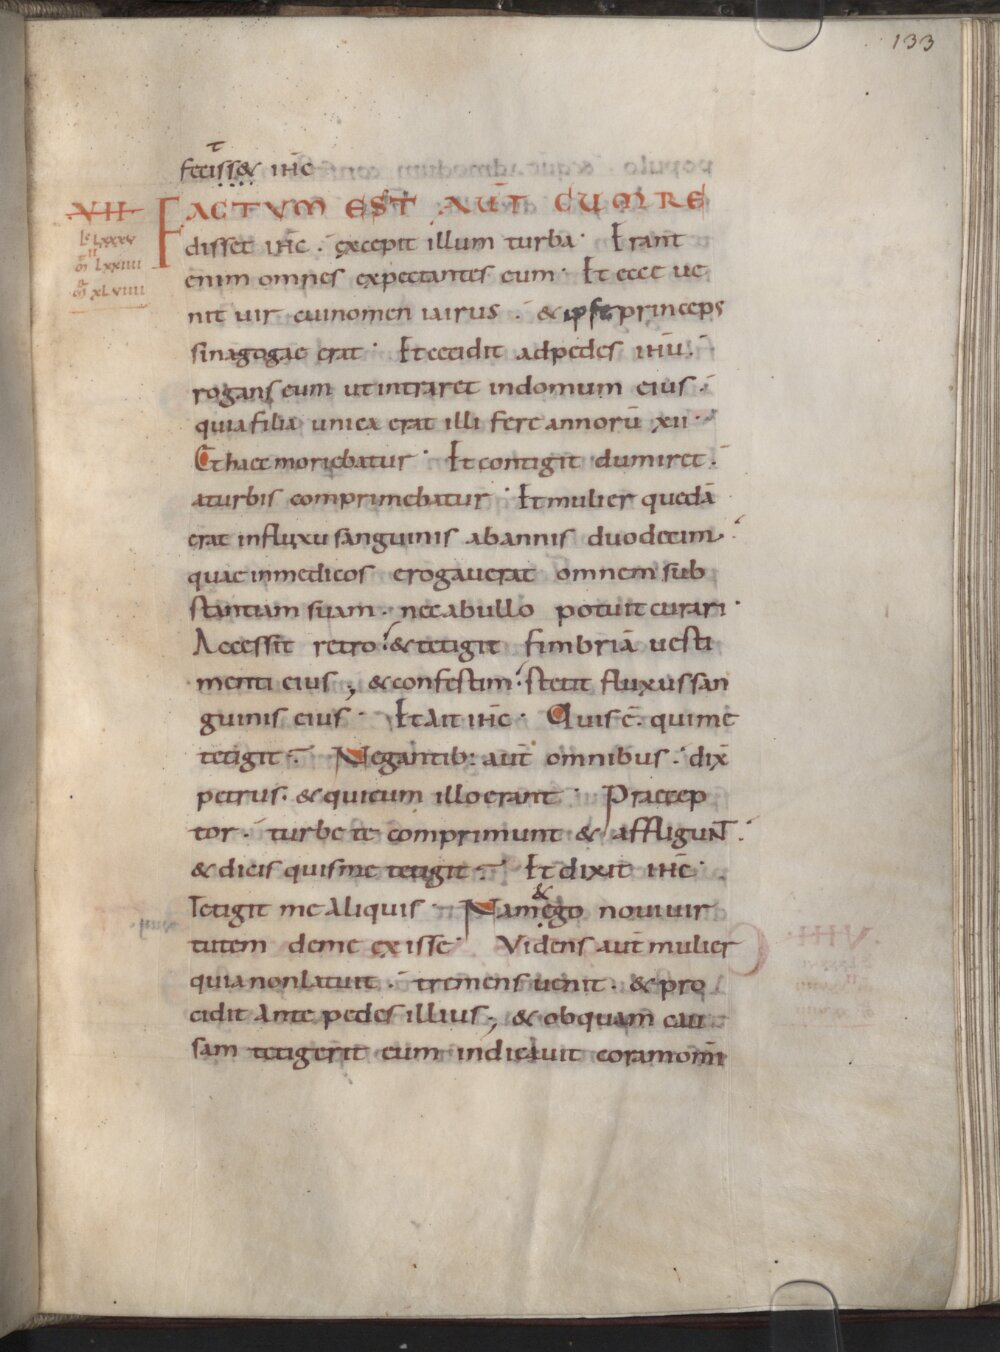 133
fecisset ihc
VII
FACTUM EST AUT CUM RE
L LXXXV
disset ihc . excepit illum turba . Erant
M LXXIIII
enim omnes expectantes eum . Et ecce ue
M XLVIIII
nit uir cui nomen iairus . & ipse princeps
sinagogae erat . Et cecidit ad pedes ihu .
rogans eum ut intraret in domum eius .
quia filia unica erat illi fere annorū xii .
Et haec moriebatur . Et contigit dum iret .
a turbis comprimebatur . Et mulier quedā
erat in fluxu sanguinis ab annis duodecim .
quae in medicos erogauerat omnem sub
stantiam suam . nec ab ullo potuit curari .
Accessit retro . & tetigit fimbriā uesti
menti eius ; & confestim . stetit fluxus san
guinis eius . Et ait ihc . Quis ē . qui me
tetigit . Negantib: aut omnibus . dix̄
petrus . & qui cum illo erant . Praecep
tor . turbe te comprimunt & affligunt .
& dicis quis me tetigit . Et dixit ihc .
&
Tetigit me aliquis . Nam ego noui uir
tutem de me exisse . Videns aut mulier
quia non latuit . tremens uenit . & pro
cidit ante pedes illius ; & ob quam cau
sam tetigerit eum indicauit coram omi